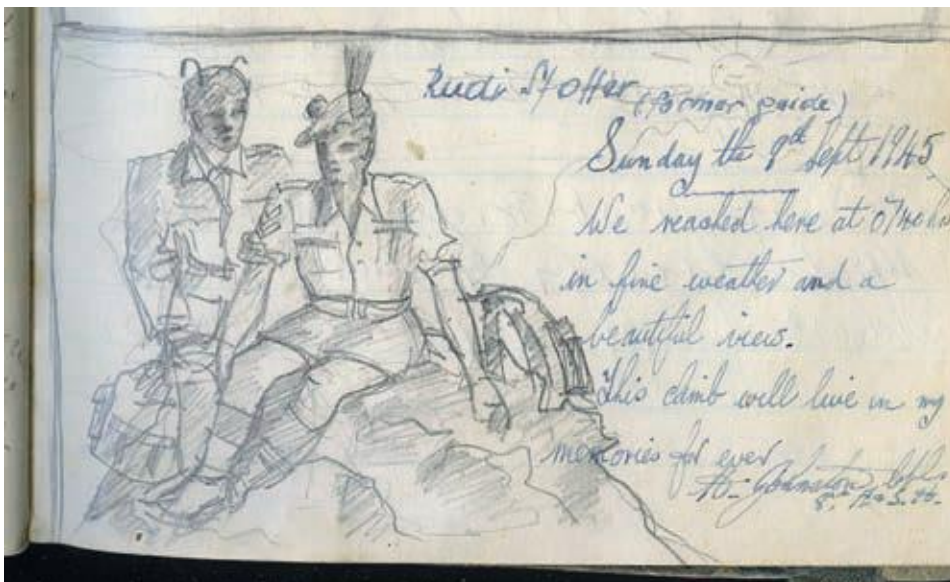 Rudi
(former guide)
Sunday the 9th Sept 1945
We reached here at 0740 h
in fine weather and a
beautiful view.
This climb will live in my
memories for ever
Johnston Cpl.